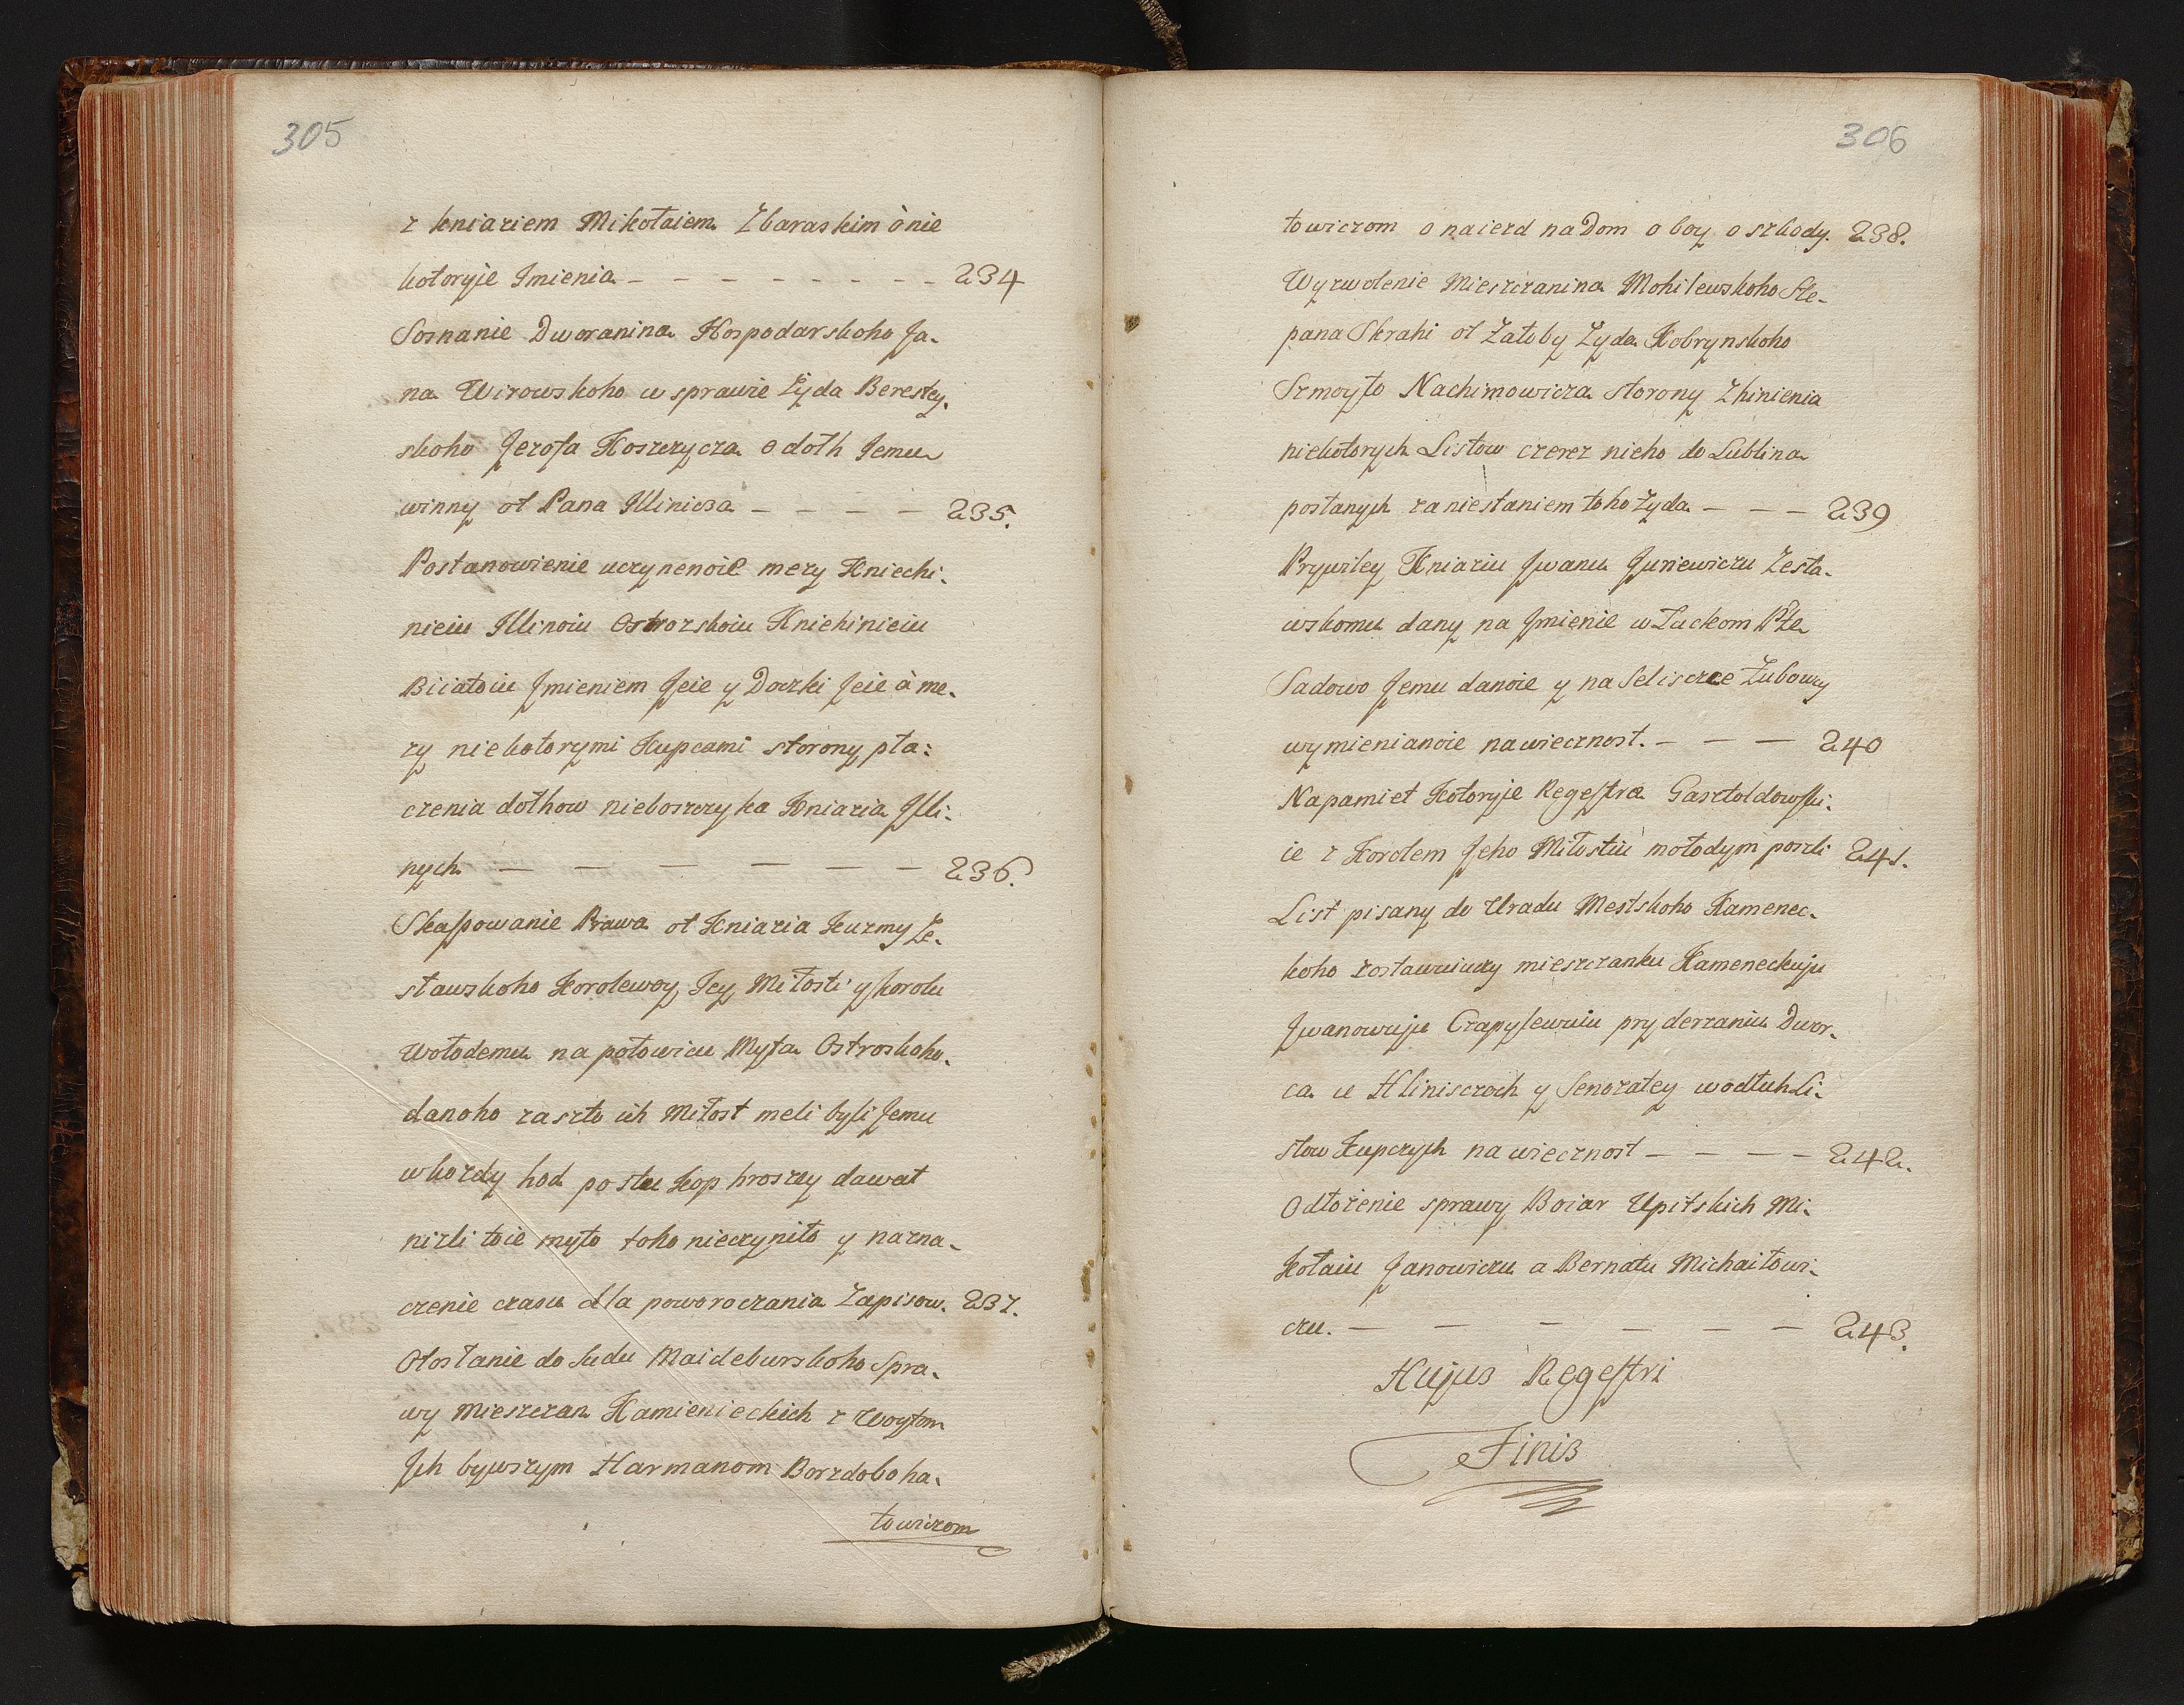 305
z kniaziem Mikołaiem Zbaraskim ò nie
kotoryie Imienia — — — — — — — — 234
Soznanie Dworanina Hospodarskoho Ja-
na Wirowskoho w sprawie Żyda Berestey-
skoho Jezofa Hoszczycza o dołh Jemu
winny ot Pana Illinicza — — — — 235.
Postanowienie uczynenoie mezy Kniechi-
nieiu Illinoiu Ostrozskoiu Kniehinieiu
Biiatoiu Jmieniem Jeie y Doczki Jeie à me-
zy niekotorymi Kupcami storony pła-
czenia dołhow nieboszczyka Kniazia Illi-
nych — — — — — — 236.
Skassowanie Prawa ot Kniazia Kuzmy Ze-
sławskoho Korolewoy Jey Miłosti y korolu
Wołodemu na połowicu Myta Ostroskoho
danoho zaszto ich Miłost meli byli Jemu
w kozdy hod po stu kop hroszey dawat
nizli toie myto toho nieczyniło y nazna-
czenie czasu dla poworoczania Zapisow. 237.
Otosłanie do Sudu Maideburskoho Spra-
wy Mieszczan Kamienieckich z Woytom
Jch bywszym Harmanom Borzdoboha-
towiczom
306
towiczom o naiezd na Dom o boy o szkody. 238.
Wyzwolenie Mieszczanina Mohilewskoho Ste-
pana Skrahi ot Załoby Zyda Kobrynskoho
Szmoyło Nachimowicza storony Zhinienia
niekotorych Listow czerez nieho do Lublina
posłanych za niestaniem toho Żyda — — — 239
Prywiley Kniaziu Jwanu Juriewiczu Zesła-
wskomu dany na Jmienie w Łuckom Pte
Sadowo Jemu danoie y na Seliszcze Zubowzy
wymienianoie na wiecznost. — — — 240
Na pamiet kotoryie Regestra Gasztoldowski-
ie z Korolem Jeho Miłostiu mołodym poszli 241.
List pisany do Uradu Mestskoho Kamenec-
koho zostawuiuczy mieszczanku Kameneckuju
Jwanowuju Czapylewuiu pry derzaniu Dwor-
ca w Hliniszczoch y Senozatey wodłuh Li-
stow Kupczych na wiecznost — — — — 242.
Odłożenie sprawy Boiar Upitskich Mi-
kołaiu Janowiczu a Bernatu Michaiłowi-
czu. — — — — — — 243.
Hujus Regestri
Finis